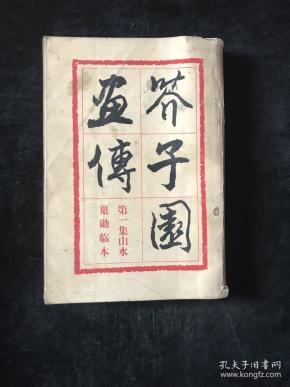 芥子園
畫傳
第一集山水
巢勛臨本
孔夫子旧书网
www.kongfz.com